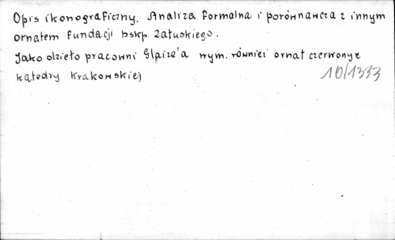 Opis ikonograficzny. Analiza formalna i porównawcza z innym
ornatem fundacji bskp. Załuskiego.
Jako dzieło pracowni Glaize'a wym. również ornat czerwony z
katedry Krakowskiej
10/1333